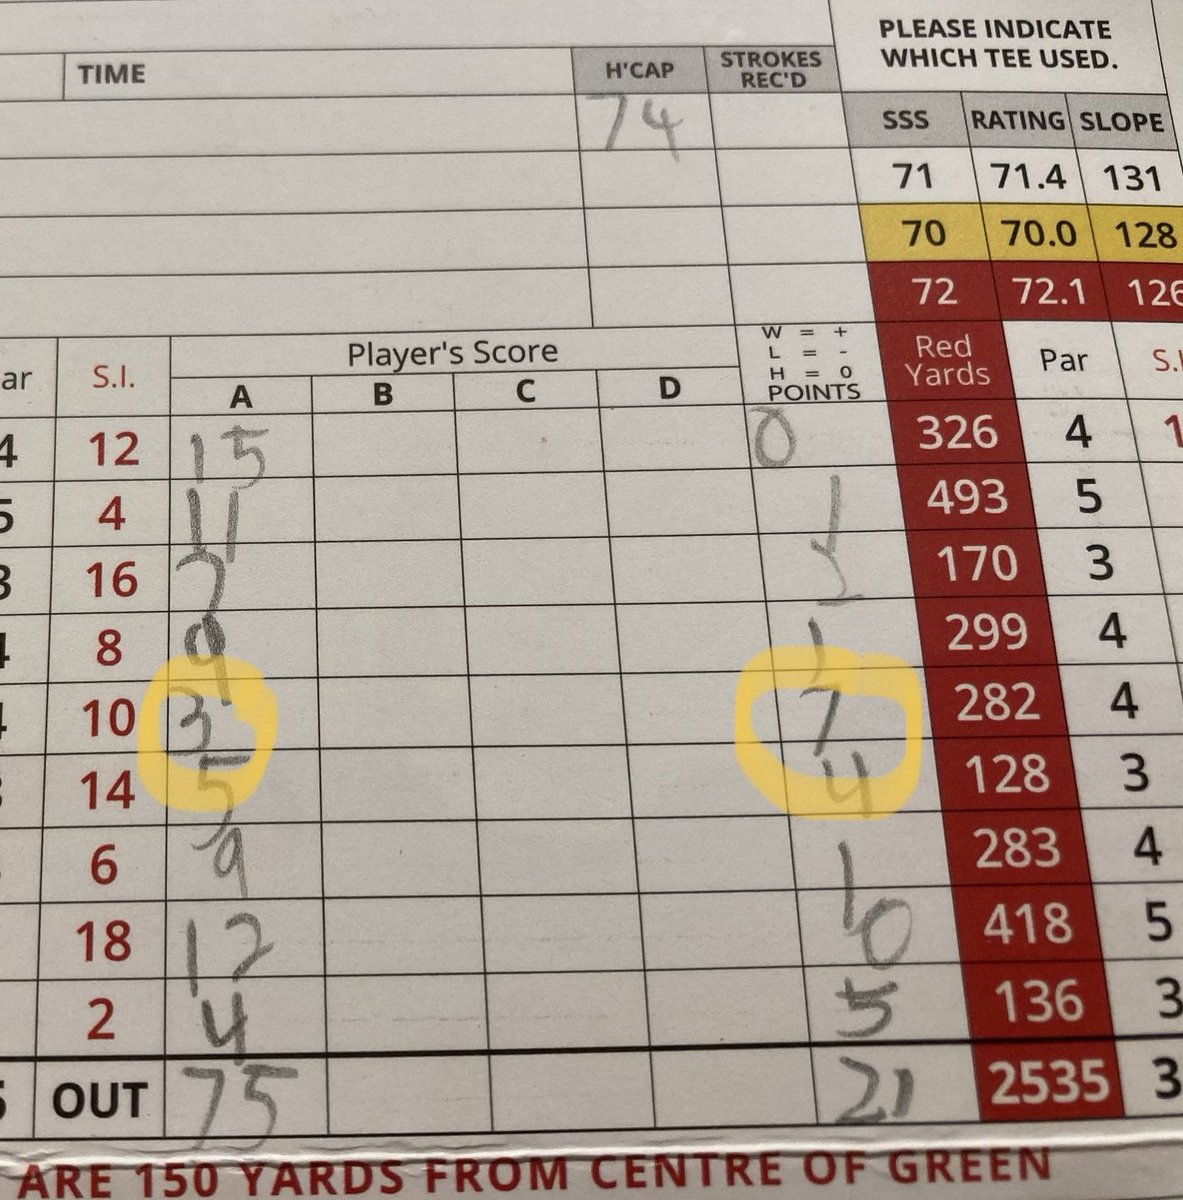 PLEASE INDICATE
WHICH TEE USED.
TIME H'CAP STROKES REC'D SSS RATING SLOPE
74
71 71.4 131
70 70.0 128
72 72.1 126
ar S.I. Player's Score W = + L = - H = 0 POINTS Red Yards Par S.I
A B C D
4 12 15 0 326 4 1
5 4 11 1 493 5
3 16 7 2 170 3
4 8 9 1 299 4
4 10 3 7 282 4
3 14 5 4 128 3
6 9 1 283 4
18 12 0 418 5
2 4 5 136 3
5 OUT 75 21 2535 3
ARE 150 YARDS FROM CENTRE OF GREEN